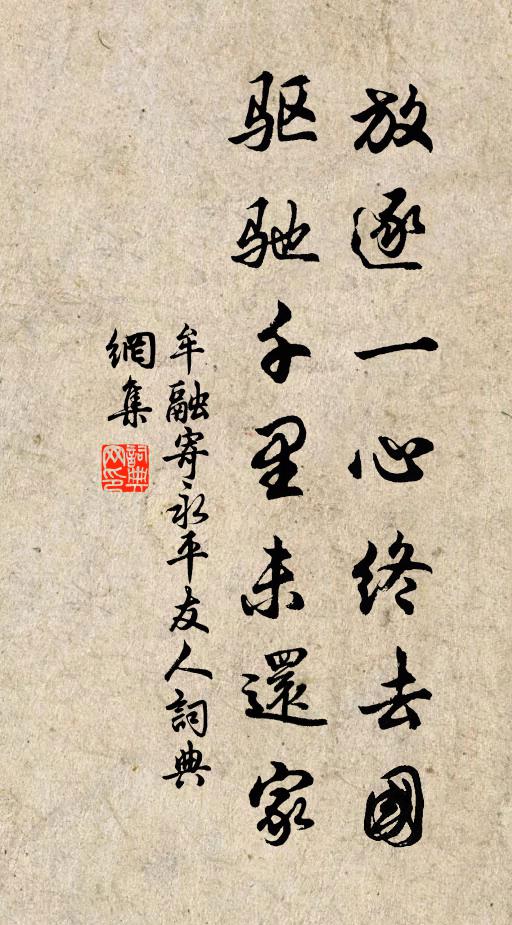 放逐一心終去國
驱驰千里未還家
牟融寄永平友人詞典
網集
詞典
网印